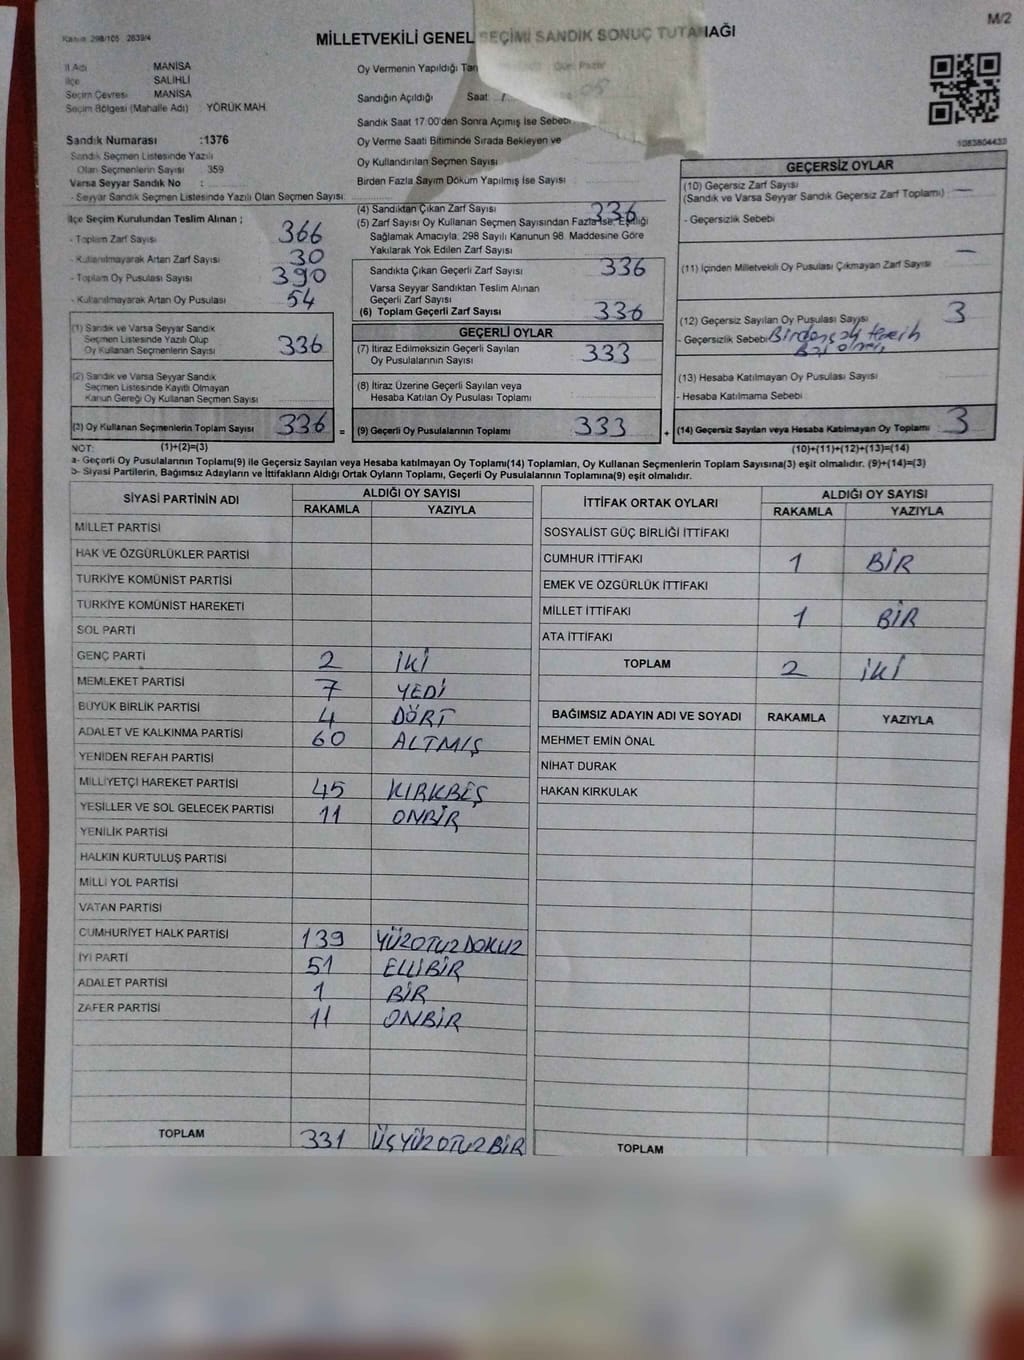 M/2
Kanun 298/105 2839/4
MİLLETVEKİLİ GENEL SEÇİMİ SANDIK SONUÇ TUTANAĞI
İl Adı MANİSA
İlçe SALİHLİ
Seçim Çevresi MANİSA
Seçim Bölgesi (Mahalle Adı) YÖRÜK MAH.
Sandık Numarası :1376
Sandık Seçmen Listesinde Yazılı
Olan Seçmenlerin Sayısı 359
Varsa Seyyar Sandık No :
- Seyyar Sandık Seçmen Listesinde Yazılı Olan Seçmen Sayısı:
Oy Vermenin Yapıldığı
Sandığın Açıldığı Saat
Sandık Saat 17:00'den Sonra Açımış İse Sebebi
Oy Verme Saati Bitiminde Sırada Bekleyen ve
Oy Kullandırılan Seçmen Sayısı
Birden Fazla Sayım Döküm Yapılmış İse Sayısı
1083804433
İlçe Seçim Kurulundan Teslim Alınan ;
- Toplam Zarf Sayısı 366
- Kullanılmayarak Artan Zarf Sayısı 30
- Toplam Oy Pusulası Sayısı 390
- Kullanılmayarak Artan Oy Pusulası 54
(1) Sandık ve Varsa Seyyar Sandık
Seçmen Listesinde Yazılı Olup
Oy Kullanan Seçmenlerin Sayısı 336
(2) Sandık ve Varsa Seyyar Sandık
Seçmen Listesinde Kayıtlı Olmayan
Kanun Gereği Oy Kullanan Seçmen Sayısı
(3) Oy Kullanan Seçmenlerin Toplam Sayısı 336 =
(4) Sandıktan Çıkan Zarf Sayısı 336
(5) Zarf Sayısı Oy Kullanan Seçmen Sayısından Fazla İse, Eşitliği
Sağlamak Amacıyla: 298 Sayılı Kanunun 98. Maddesine Göre
Yakılarak Yok Edilen Zarf Sayısı
Sandıkta Çıkan Geçerli Zarf Sayısı 336
Varsa Seyyar Sandıktan Teslim Alınan
Geçerli Zarf Sayısı
(6) Toplam Geçerli Zarf Sayısı 336
GEÇERLİ OYLAR
(7) İtiraz Edilmeksizin Geçerli Sayılan
Oy Pusulalarının Sayısı 333
(8) İtiraz Üzerine Geçerli Sayılan veya
Hesaba Katılan Oy Pusulası Toplamı
(9) Geçerli Oy Pusulalarının Toplamı 333 +
GEÇERSİZ OYLAR
(10) Geçersiz Zarf Sayısı
(Sandık ve Varsa Seyyar Sandık Geçersiz Zarf Toplamı) —
- Geçersizlik Sebebi
(11) İçinden Milletvekili Oy Pusulası Çıkmayan Zarf Sayısı —
(12) Geçersiz Sayılan Oy Pusulası Sayısı 3
- Geçersizlik Sebebi Birden çok tercih
(13) Hesaba Katılmayan Oy Pusulası Sayısı
- Hesaba Katılmama Sebebi
(14) Geçersiz Sayılan veya Hesaba Katılmayan Oy Toplamı 3
NOT: (1)+(2)=(3) (10)+(11)+(12)+(13)=(14)
a- Geçerli Oy Pusulalarının Toplamı(9) ile Geçersiz Sayılan veya Hesaba katılmayan Oy Toplamı(14) Toplamları, Oy Kullanan Seçmenlerin Toplam Sayısına(3) eşit olmalıdır. (9)+(14)=(3)
b- Siyasi Partilerin, Bağımsız Adayların ve İttifakların Aldığı Ortak Oyların Toplamı, Geçerli Oy Pusulalarının Toplamına(9) eşit olmalıdır.
SİYASİ PARTİNİN ADI ALDIĞI OY SAYISI
RAKAMLA YAZIYLA
MİLLET PARTİSİ
HAK VE ÖZGÜRLÜKLER PARTİSİ
TÜRKİYE KOMÜNİST PARTİSİ
TÜRKİYE KOMÜNİST HAREKETİ
SOL PARTİ
GENÇ PARTİ 2 İKİ
MEMLEKET PARTİSİ 7 YEDİ
BÜYÜK BİRLİK PARTİSİ 4 DÖRT
ADALET VE KALKINMA PARTİSİ 60 ALTMIŞ
YENİDEN REFAH PARTİSİ
MİLLİYETÇİ HAREKET PARTİSİ 45 KIRKBEŞ
YEŞİLLER VE SOL GELECEK PARTİSİ 11 ONBİR
YENİLİK PARTİSİ
HALKIN KURTULUŞ PARTİSİ
MİLLİ YOL PARTİSİ
VATAN PARTİSİ
CUMHURİYET HALK PARTİSİ 139 YÜZOTUZDOKUZ
İYİ PARTİ 51 ELLİBİR
ADALET PARTİSİ 1 BİR
ZAFER PARTİSİ 11 ONBİR
TOPLAM 331 ÜÇYÜZOTUZBİR
İTTİFAK ORTAK OYLARI ALDIĞI OY SAYISI
RAKAMLA YAZIYLA
SOSYALİST GÜÇ BİRLİĞİ İTTİFAKI
CUMHUR İTTİFAKI 1 BİR
EMEK VE ÖZGÜRLÜK İTTİFAKI
MİLLET İTTİFAKI 1 BİR
ATA İTTİFAKI
TOPLAM 2 İKİ
BAĞIMSIZ ADAYIN ADI VE SOYADI RAKAMLA YAZIYLA
MEHMET EMİN ÖNAL
NİHAT DURAK
HAKAN KIRKULAK
TOPLAM